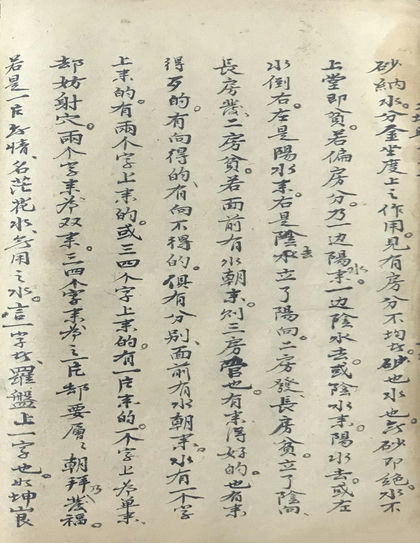 砂納水。分金坐度上之作用。見有房分不均者。砂也水也。無砂即絕。水不
上堂即貧。若偏房分。乃一邊陽水來。一邊陰水去。或陰水來。陽水去。或左
水倒右。左是陽水來。右是陰水去。立了陽向。二房發長房貧。立了陰向。
長房發。二房貧。若面前有水朝來。則三房管也。有來得好的。也有來
得歹的。有向得的。有向不得的。俱有分別。面前有水朝來。水有一个字
上來的。有兩个字上來的。或三四个字上來的。有一片來的。个字上為單來。
却妨射穴。兩个字來為双來。三四个字來為之一片。却要層々朝拜。乃發福。
若是一片無情。名茫花水。無用之水。言一字者。羅盤上一字也。如坤山艮